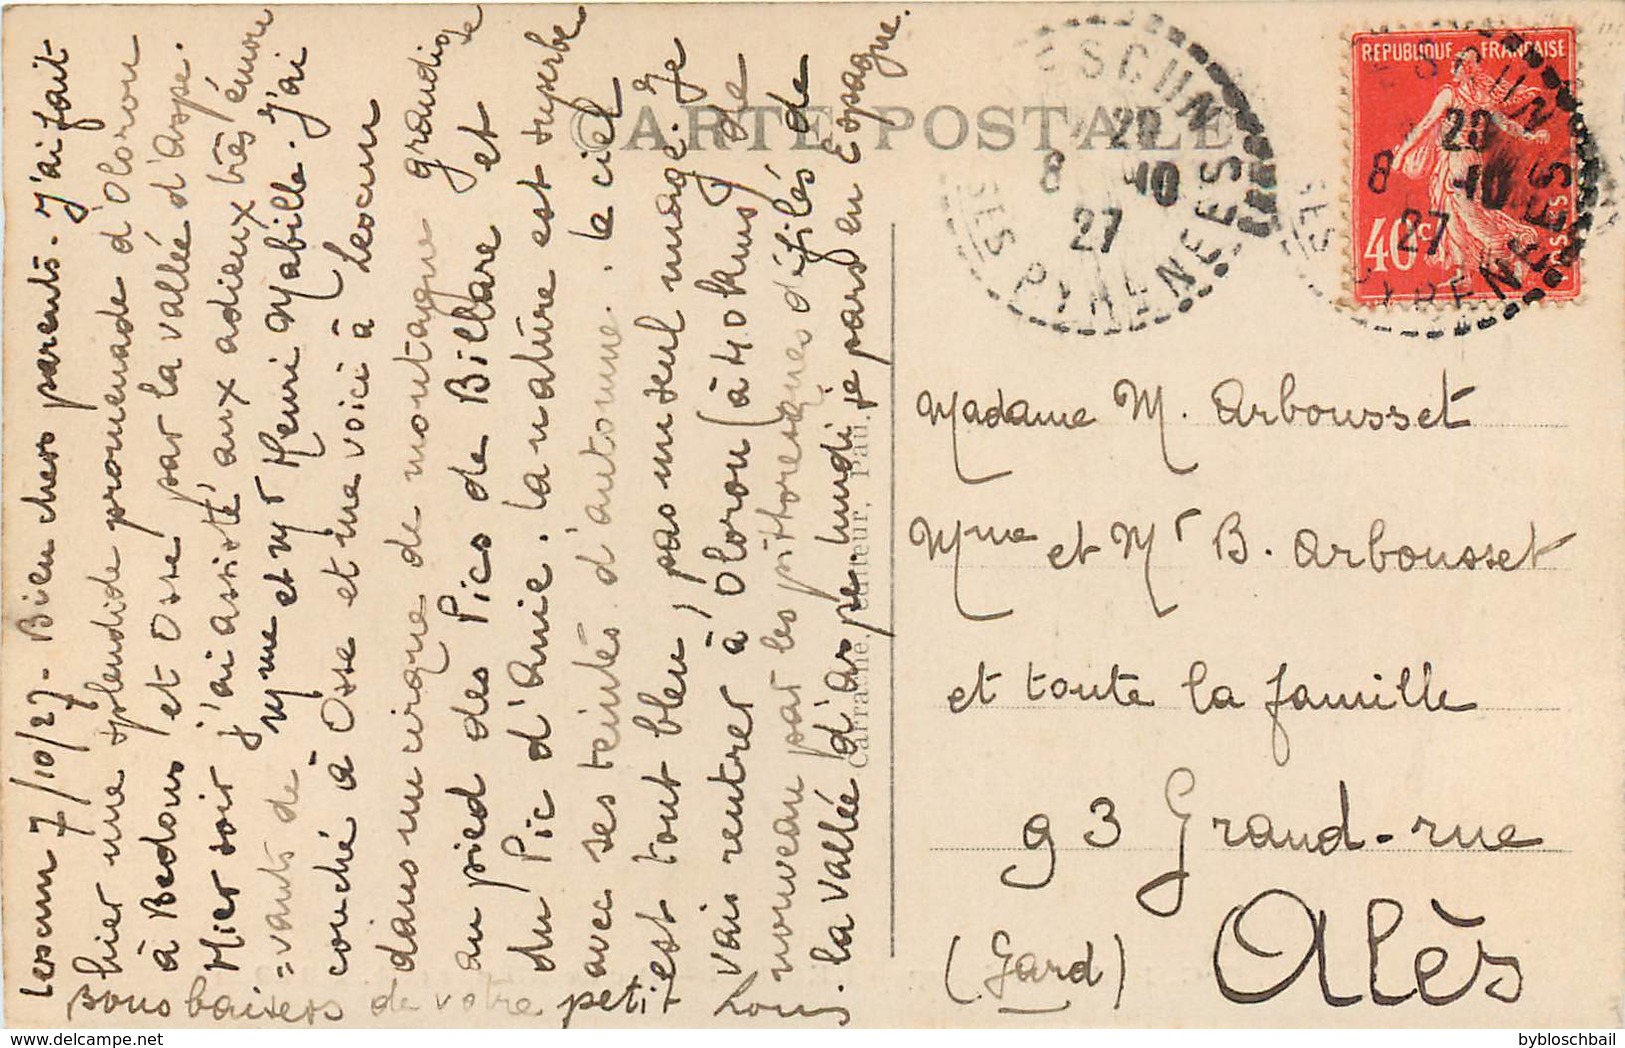 Lescun 7/10/27 - Bien chers parents. J'ai fait
hier une splendide promenade d'Oloron
à Bedous et Osse par la vallée d'Aspe.
Hier soir j'ai assisté aux adieux très émou
=vants de Mme et Mr Henri Mabille. J'ai
couché à Osse et me voici à Lescun
dans un cirque de montagne grandiose
au pied des Pics de Billare et
du Pic d'Anie. La nature est superbe
avec ses teintes d'automne. le ciel
est tout bleu, pas un seul nuage. Je
vais rentrer à Oloron (à 40 kms) de
nouveau par les pittoresques défilés de
la vallée d'Aspe, lundi je pars en Espagne.
Bons baisers de votre petit
Louis
CARTE POSTALE
Carrache. éditeur, Pau.
LESCUN
20
8 10
27
BSES PYRENEES
REPUBLIQUE FRANÇAISE
40c
LESCUN
20
8 10
27
BSES PYRENEES
Madame M. Arbousset
Mme et Mr B. Arbousset
et toute la famille
93 Grand-rue
Alès
(Gard)
bybloschbail